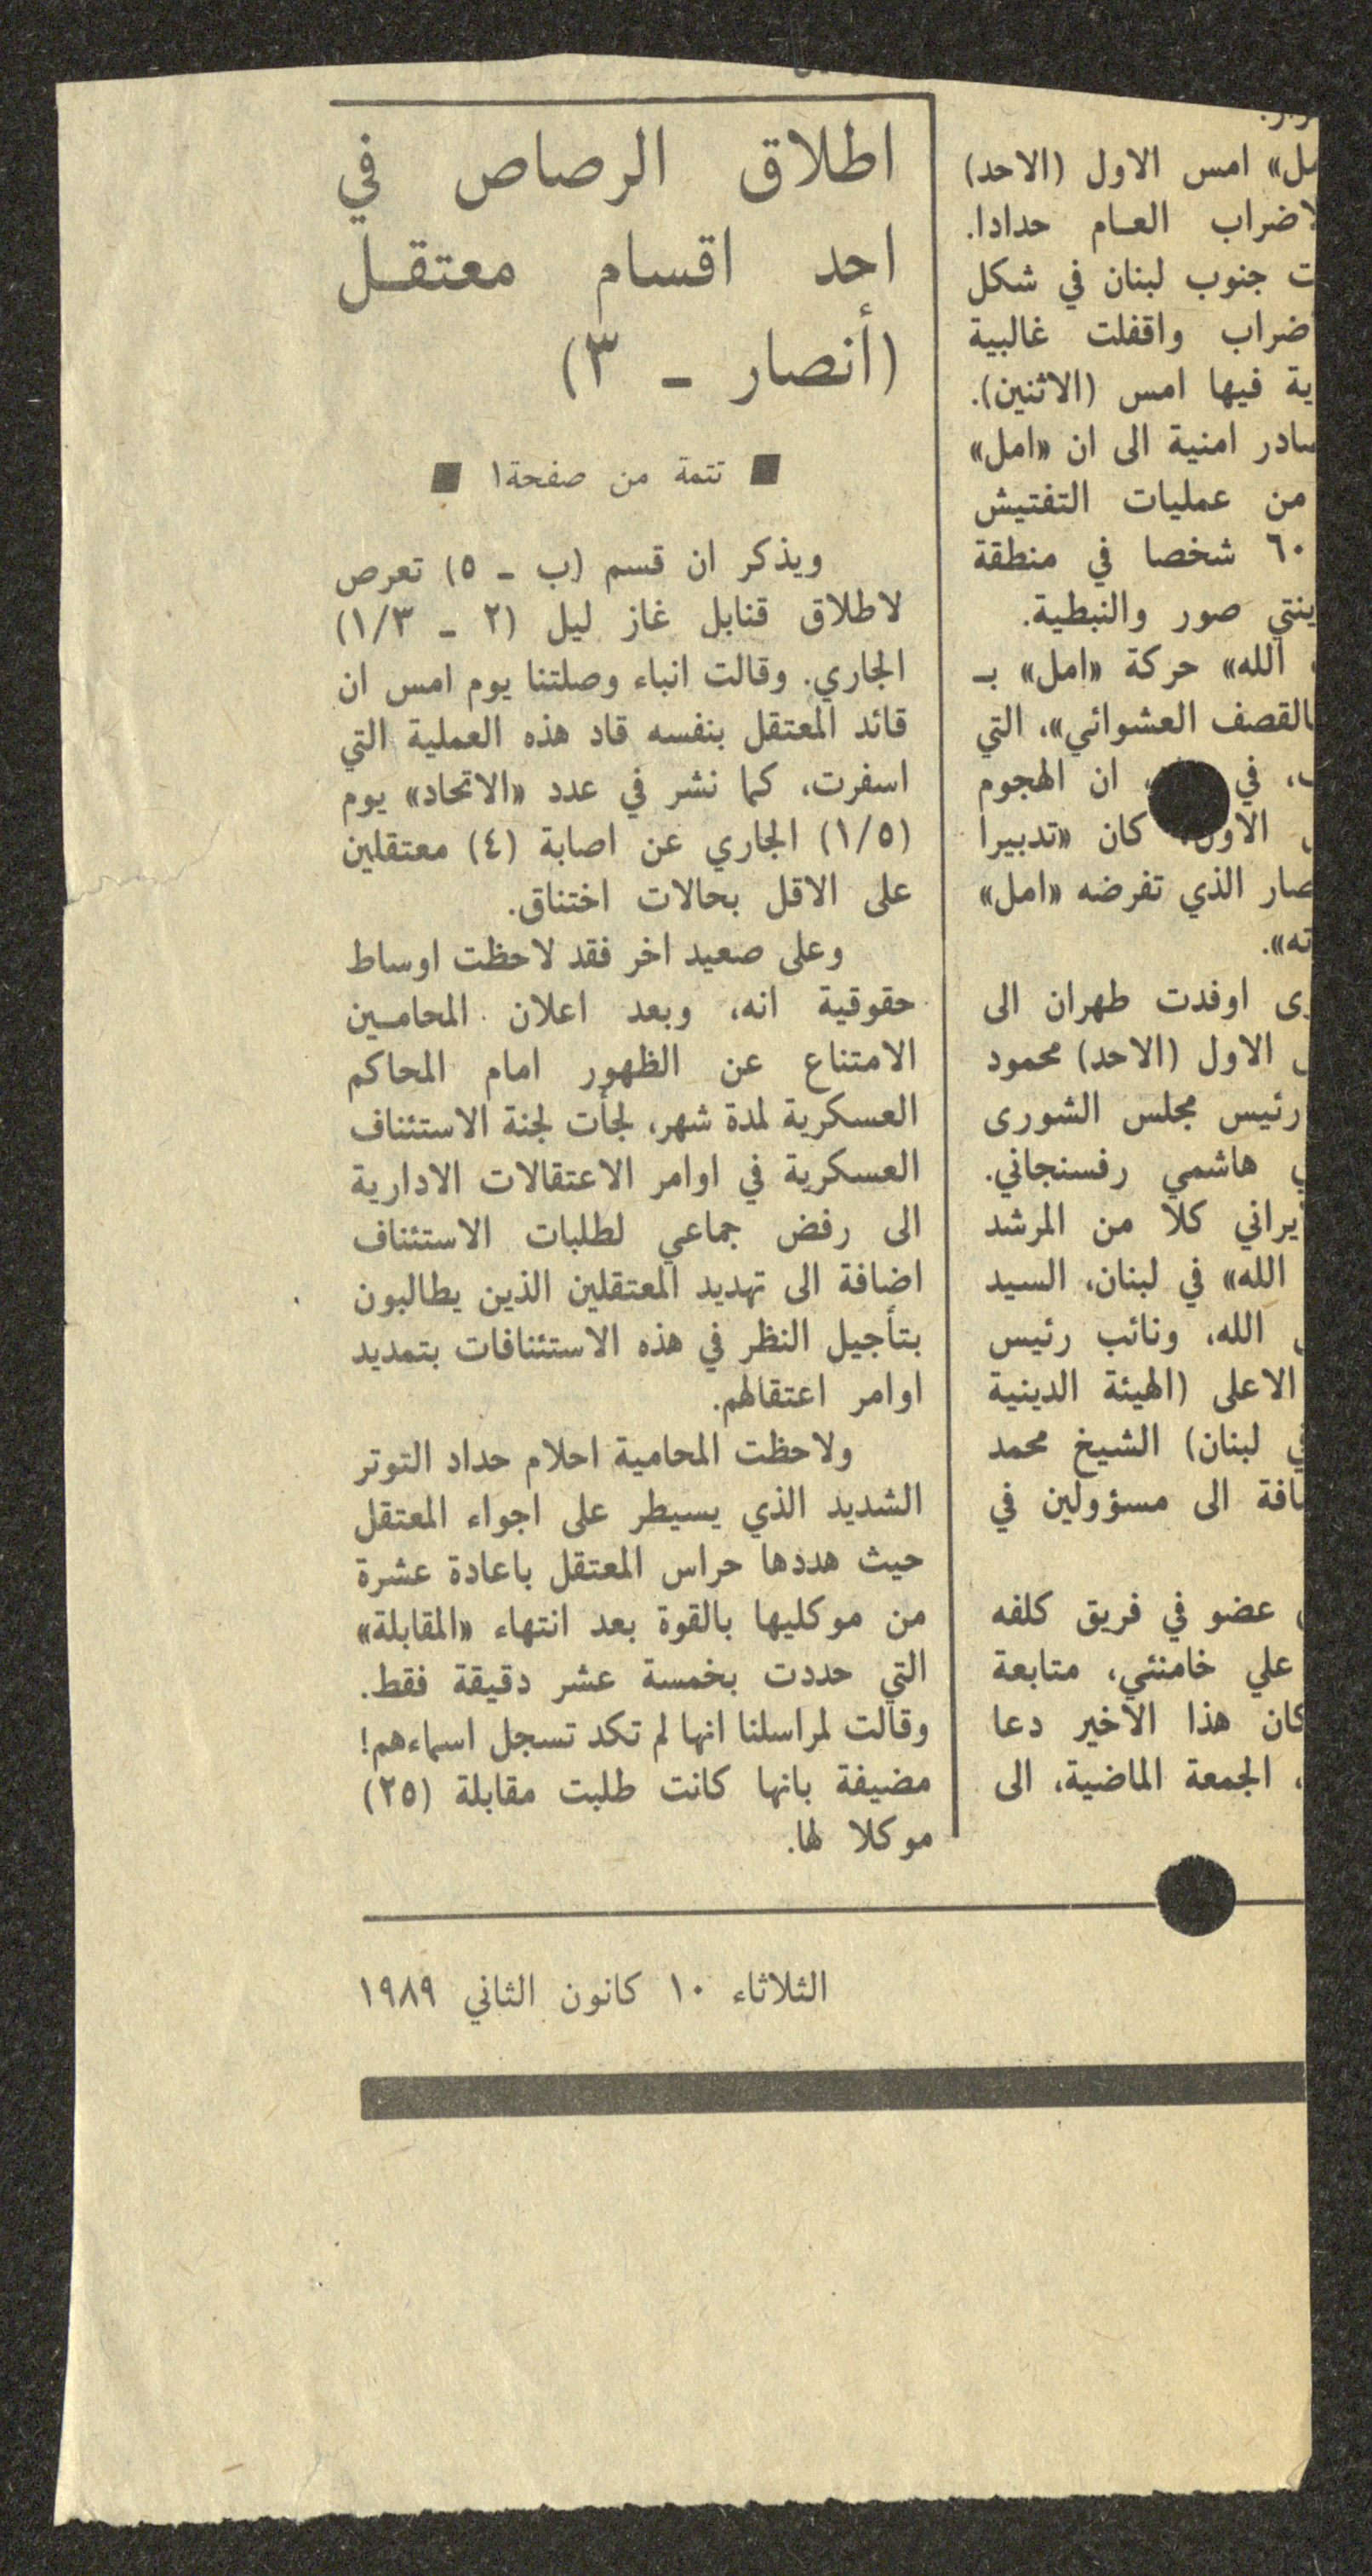 مل» امس الاول (الاحد)
لاضراب العـام حدادا.
ت جنوب لبنان في شكل
ضراب واقفلت غالبية
ية فيها امس (الاثنين).
سادر امنية الى ان «امل»
من عمليات التفتيش
٦٠ شخصا في منطقة
ينتي صور والنبطية.
الله» حركة «امل» بـ
بالقصف العشوائي»، التي
في ان الهجوم
الاول، كان «تدبيرا
صار الذي تفرضه «امل»
ته».
رى اوفدت طهران الى
الاول (الاحد) محمود
رئيس مجلس الشورى
هاشمي رفسنجاني.
يراني كلا من المرشد
الله» في لبنان، السيد
الله، ونائب رئيس
الاعلى (الهيئة الدينية
في لبنان) الشيخ محمد
افة الى مسؤولين في
عضو في فريق كلفه
علي خامنئي، متابعة
كان هذا الاخير دعا
، الجمعة الماضية، الى
اطلاق الرصاص في
احد اقسام معتقـل
(أنصار ـ ٣)
■ تتمة من صفحة١ ■
ويذكر ان قسم (ب ـ ٥) تعرص
لاطلاق قنابل غاز ليل (٢ ـ ١/٣)
الجاري. وقالت انباء وصلتنا يوم امس ان
قائد المعتقل بنفسه قاد هذه العملية التي
اسفرت، كما نشر في عدد «الاتحاد» يوم
(١/٥) الجاري عن اصابة (٤) معتقلين
على الاقل بحالات اختناق.
وعلى صعيد اخر فقد لاحظت اوساط
حقوقية انه، وبعد اعلان المحامـين
الامتناع عن الظهور امام المحاكم
العسكرية لمدة شهر، لجأت لجنة الاستئناف
العسكرية في اوامر الاعتقالات الادارية
الى رفض جماعي لطلبات الاستئناف
اضافة الى تهديد المعتقلين الذين يطالبون
بتأجيل النظر في هذه الاستئنافات بتمديد
اوامر اعتقالهم.
ولاحظت المحامية احلام حداد التوتر
الشديد الذي يسيطر على اجواء المعتقل
حيث هددها حراس المعتقل باعادة عشرة
من موكليها بالقوة بعد انتهاء «المقابلة»
التي حددت بخمسة عشر دقيقة فقط.
وقالت لمراسلنا انها لم تكد تسجل اسماءهم!
مضيفة بانها كانت طلبت مقابلة (٢٥)
موكلا لها.
الثلاثاء ١٠ كانون الثاني ١٩٨٩